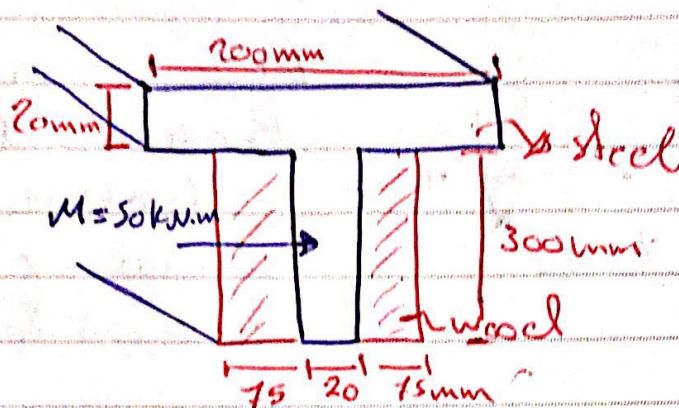 200mm
20mm
steel
M=50kN.m
300mm
wood
75 20 75mm